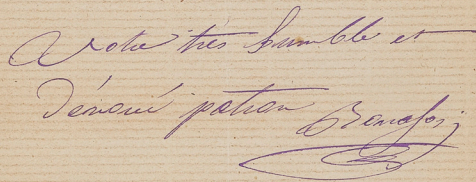 Votre très humble et
dévoué patron Bonafoi